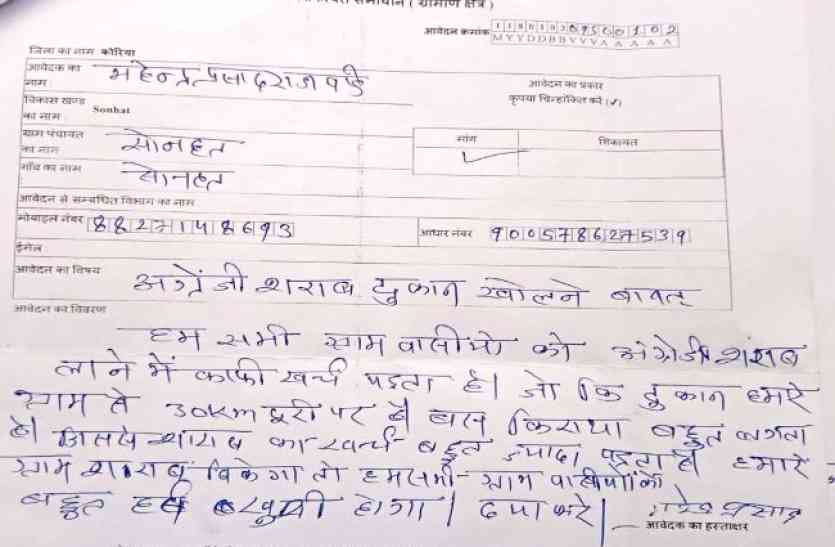 समाधान ( ग्रामीण क्षेत्र )
आवेदन क्रमांक
M Y Y D D B B V V V A A A A A
जिला का नाम कोरिया
आवेदक का नाम महेन्द्र प्रसाद राजवाडे
आवेदन का प्रकार
कृपया चिन्हांकित करें (✓)
विकास खण्ड का नाम Sonhat
ग्राम पंचायत का नाम सोनहत
मांग शिकायत
✓
गाँव का नाम सोनहत
आवेदन से सम्बंधित विभाग का नाम
मोबाइल नंबर 8827148693 आधार नंबर 900578627539
ईमेल
आवेदन का विषय अंग्रेंजी शराब दुकान खोलने बाबत्
आवेदन का विवरण
हम सभी ग्राम वासीयो को अंग्रेजी शराब
लाने में काफी खर्चा पडता है। जो कि दुकान हमारे
ग्राम से 30km दूरी पर है बस किराया बहुत लगता
है। जिससे शराब का खर्चा बहुत ज्यादा पड़ता है हमारे
ग्राम शराब बिकेगा तो हम सभी ग्राम वासीयों को
बहुत खुशी होगा। दया करे।
आवेदक का हस्ताक्षर